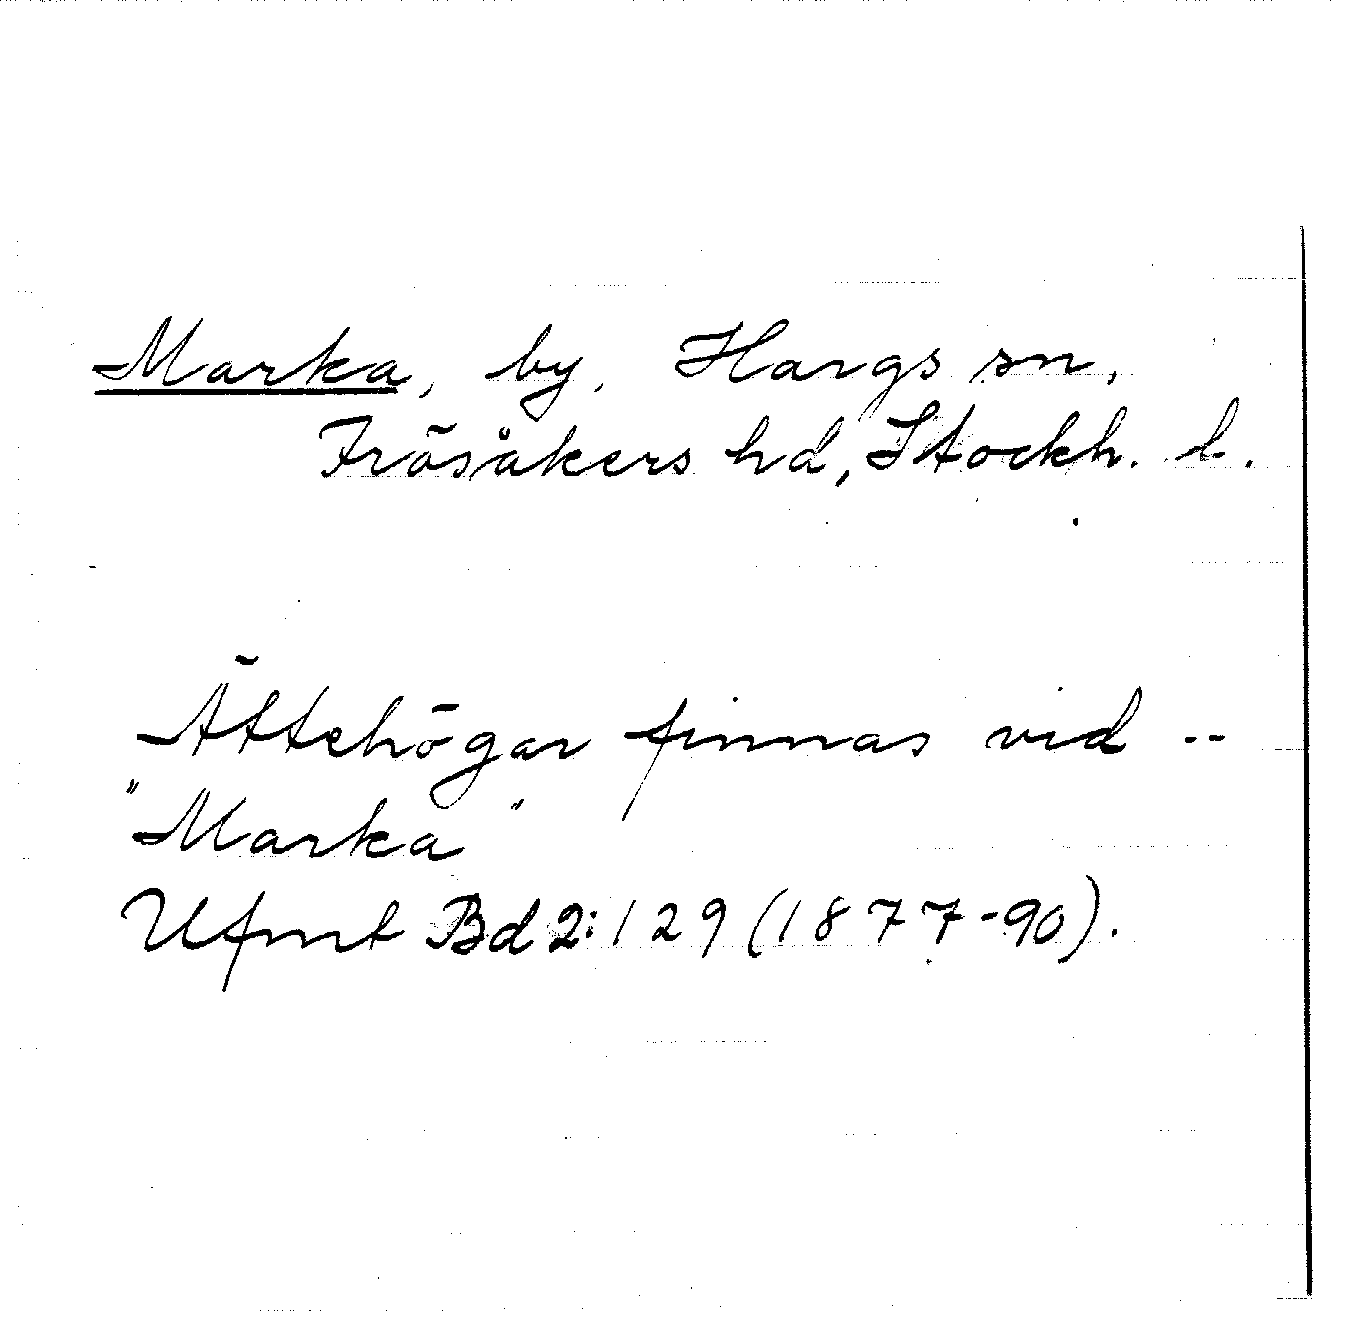 Marka, by, Hargs sn,
Frösåkers hd, Stockh. l.
Ättehögar finnas vid --
"Marka"
Ufmt Bd 2:129 (1877-90).